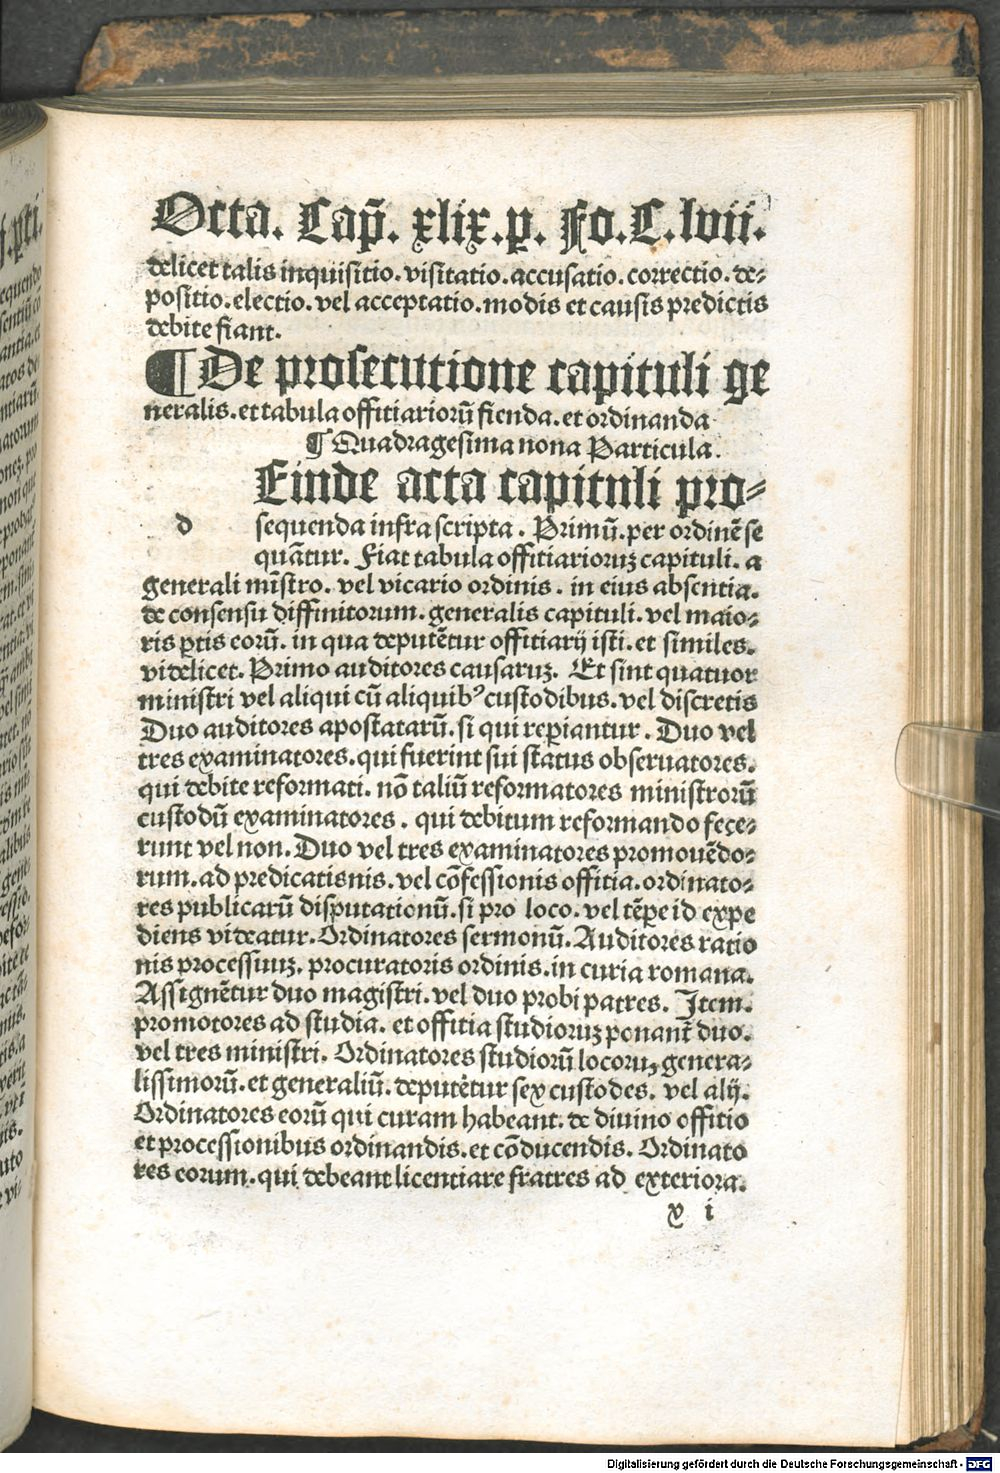 Octa. Cap̃. xlix.p. Fo.C.lvii.
delicet talis inquisitio. visitatio. accusatio. correctio. de⸗
positio. electio. vel acceptatio. modis et causis predictis
debite fiant.
¶ De prosecutione capituli ge
neralis. et tabula offitiariorū fienda. et ordinanda
¶ Quadragesima nona Particula.
Einde acta capituli pro⸗
d sequenda infra scripta. Primū. per ordinē se
quātur. Fiat tabula offitiarioruꝫ capituli. a
generali mīstro. vel vicario ordinis. in eius absentia.
de consensu diffinitorum. generalis capituli. vel maio⸗
ris ꝑtis eorū. in qua deputētur offitiarij isti. et similes.
videlicet. Primo auditores causaruꝫ. Et sint quatuor
ministri vel aliqui cū aliquibꝰ custodibus. vel discretis
Duo auditores apostatarū. si qui reꝑiantur. Duo vel
tres examinatores. qui fuerint sui status obseruatores.
qui debite reformati. nō taliū reformatores ministrorū
custodū examinatores. qui debitum reformando fece⸗
runt vel non. Duo vel tres examinatores promouēdo⸗
rum. ad predicatisnis. vel cōfessionis offitia. ordinato⸗
res publicarū disputationū. si pro loco. vel tēꝑe id expe
diens videatur. Ordinatores sermonū. Auditores ratio
nis processuuꝫ. procuratoris ordinis. in curia romana.
Assignētur duo magistri. vel duo probi patres. Item.
promotores ad studia. et offitia studioruꝫ ponant̄ duo.
vel tres ministri. Ordinatores studiorū locoruꝫ genera⸗
lissimorū. et generaliū. deputētur sex custodes. vel alij.
Ordinatores eorū qui curam habeant. de diuino offitio
et processionibus ordinandis. et cōducendis. Ordinato
res eorum. qui debeant licentiare fratres ad exteriora.
v i
Digitalisierung gefördert durch die Deutsche Forschungsgemeinschaft - DFG